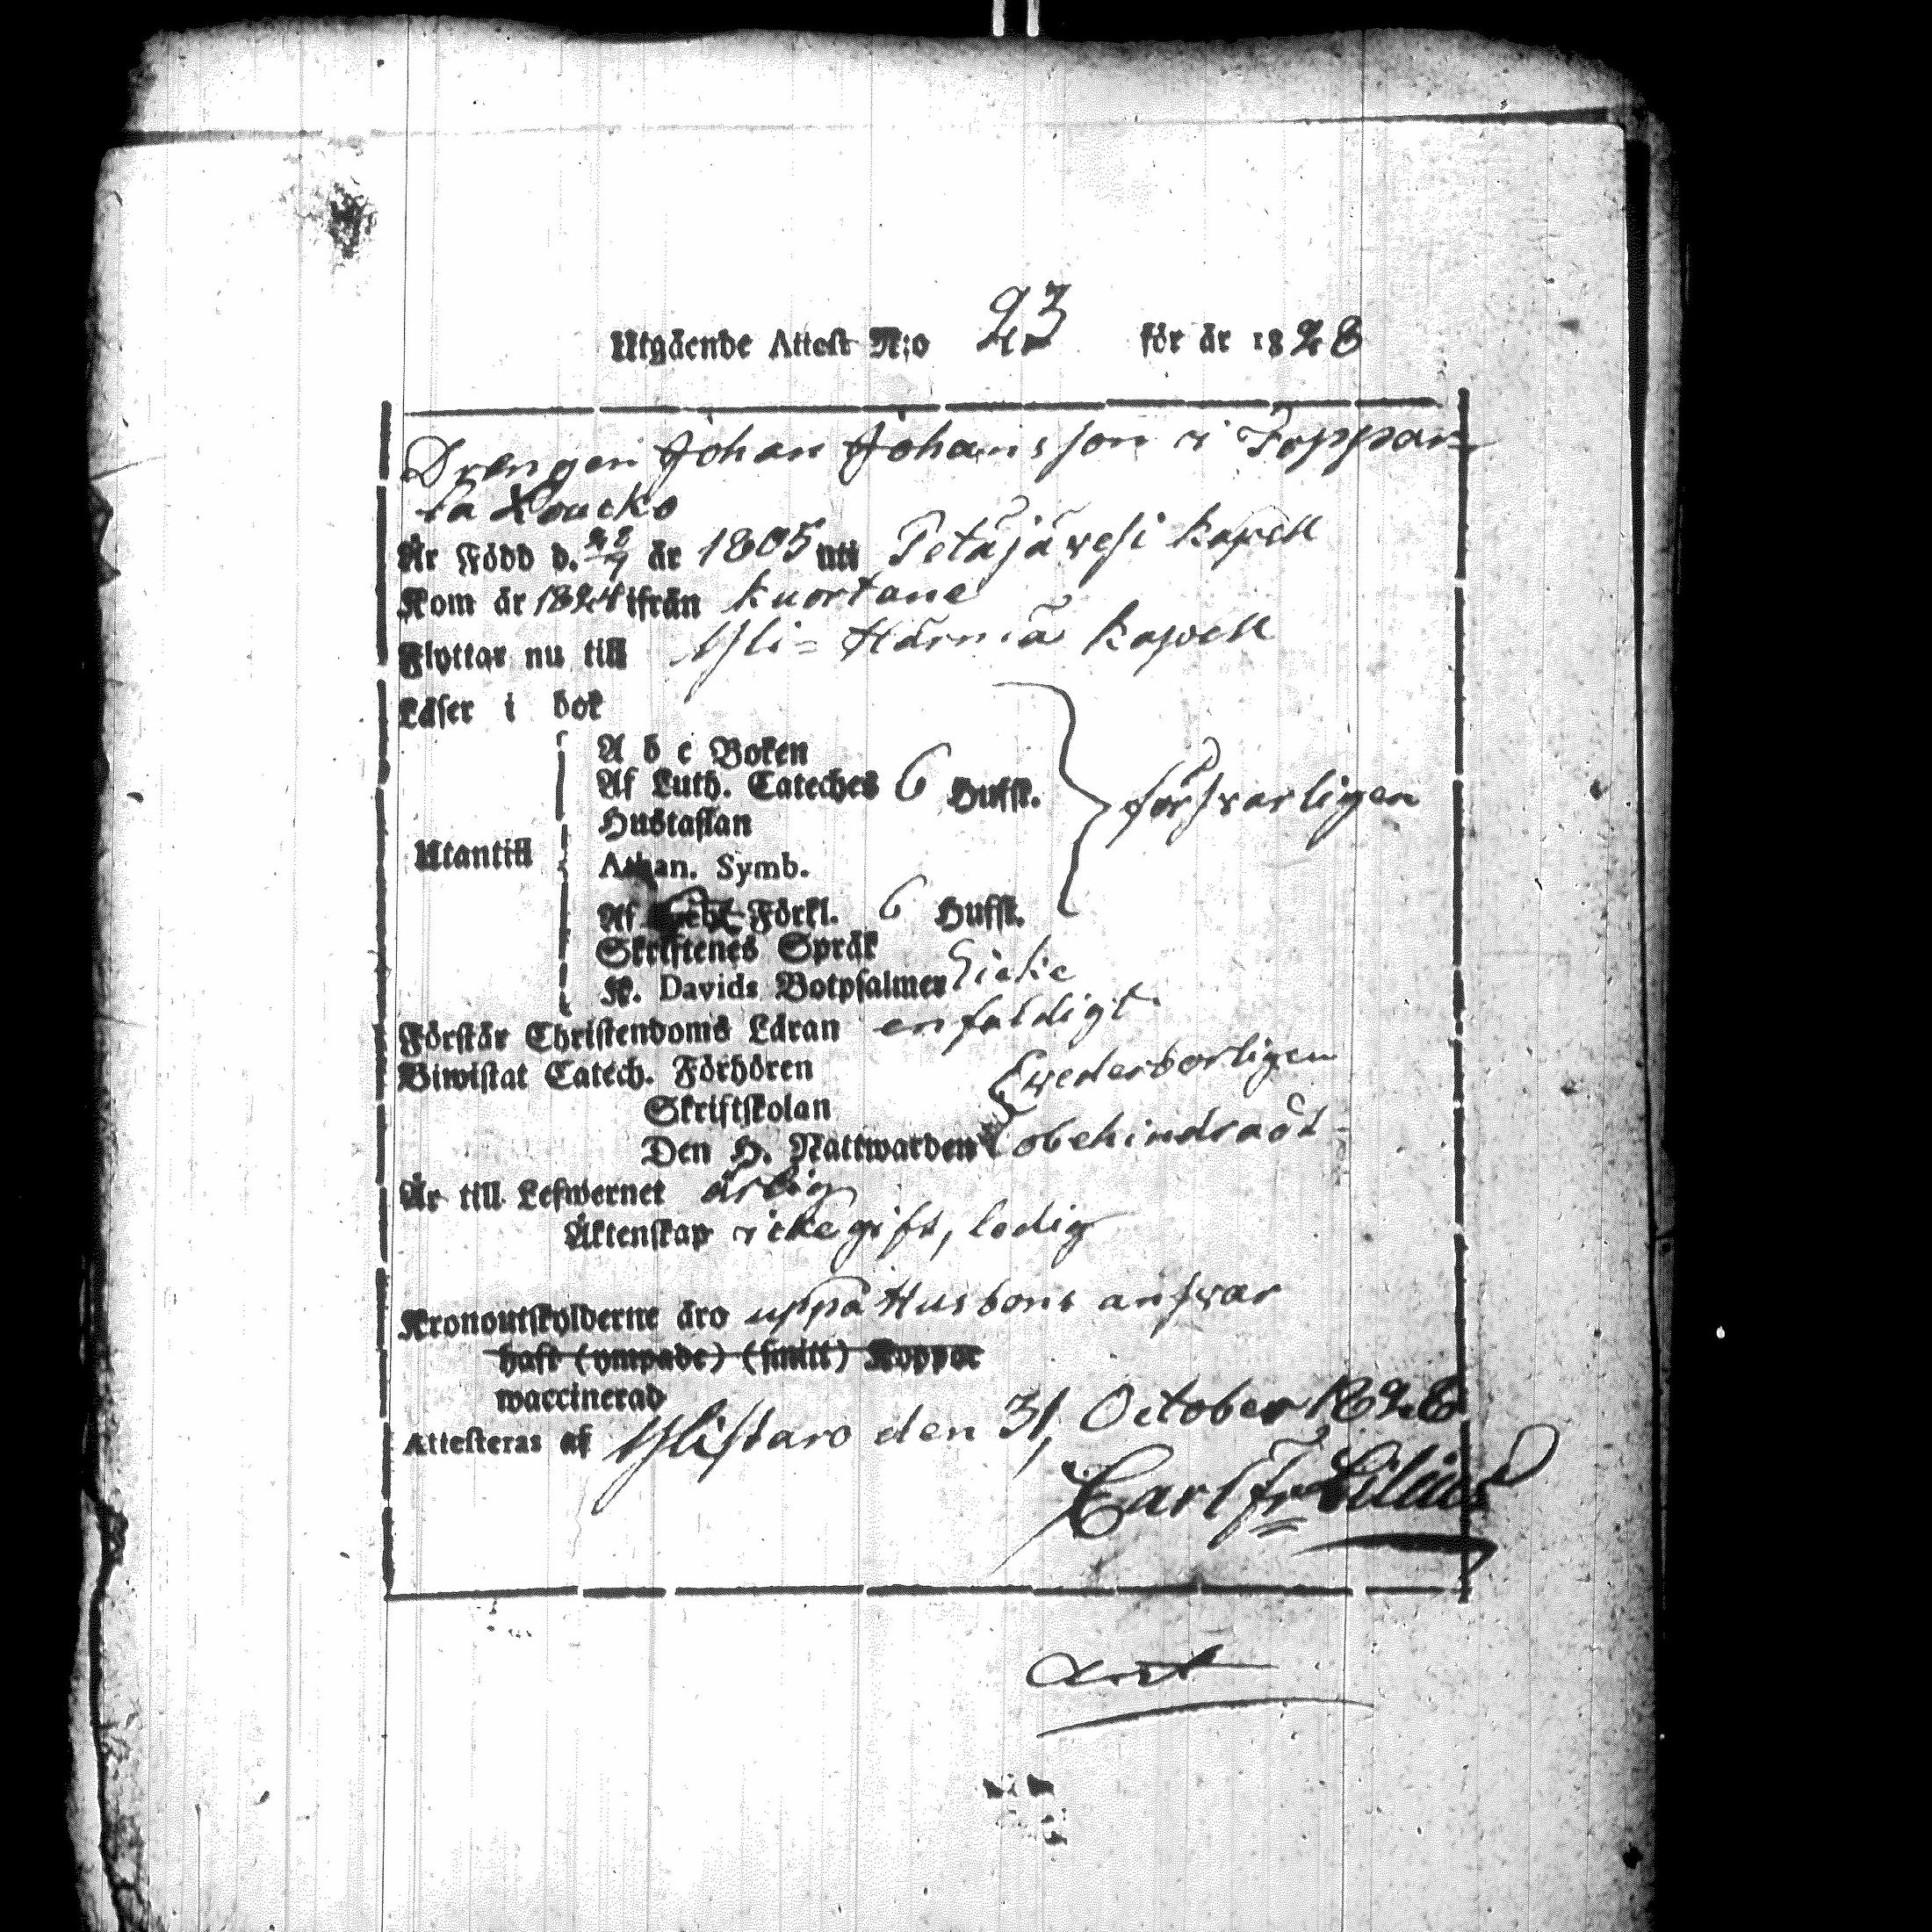 Utgående Attest N:o 23 för år 1828
Drengen Johan Johansson i Toppar=
la Loucko
Är Född d. 28/7 år 1805 uti Petäjävesi kapell
Kom år 1824 ifrån Kuortane
Flyttar nu till Yli=Härmä kapell
Läser i bok
A b c Boken
Af Luth. Cateches 6 Hufst.
Hustaflan
försvarligen
Utantill
Athan. Symb.
Af Förkl. 6 Hufst.
Skriftenes Språk
K. Davids Botpsalmer Icke
Förstår Christendoms Läran enfaldigt
Biwistat Catech. Förhören wederborligen
Skriftskolan
Den H. Nattwarden obehindradt
Är till Lefwernet ärlig
Äktenskap icke gift, ledig
Kronoutskylderne äro uppå Husbons answar
haft (ympade) (smitt) Koppor
waccinerad
Attesteras af Ylistaro den 31 October 1828
Carl Fr Lilius